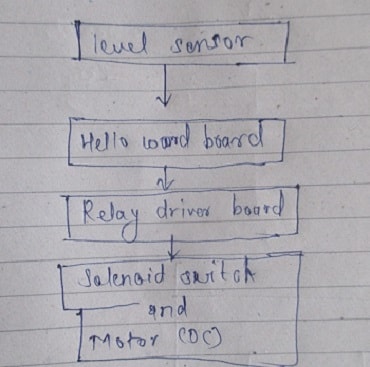 level sensor
Hello word board
Relay driver board
Solenoid switch
and
Motor (DC)